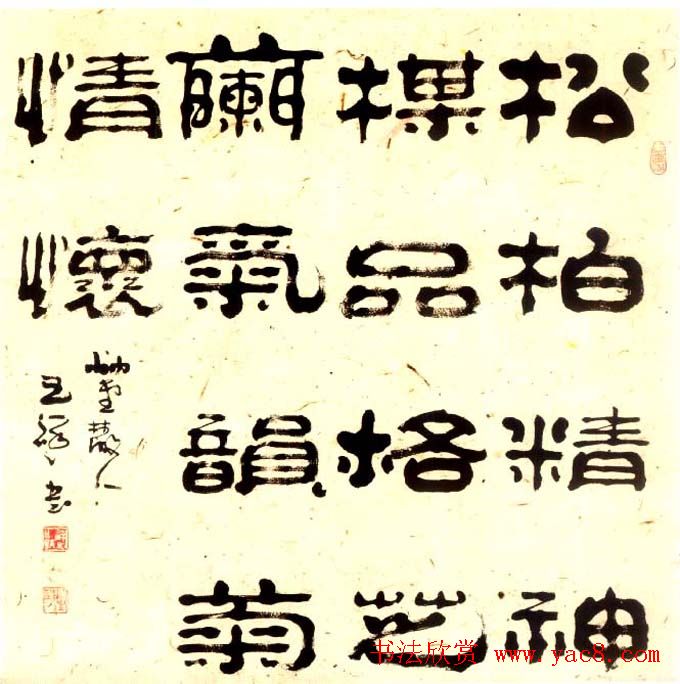 松柏精神
楳品格芝
蘭氣韻菊
情懷
堂散人
王书
书法欣赏 www.yac8.com